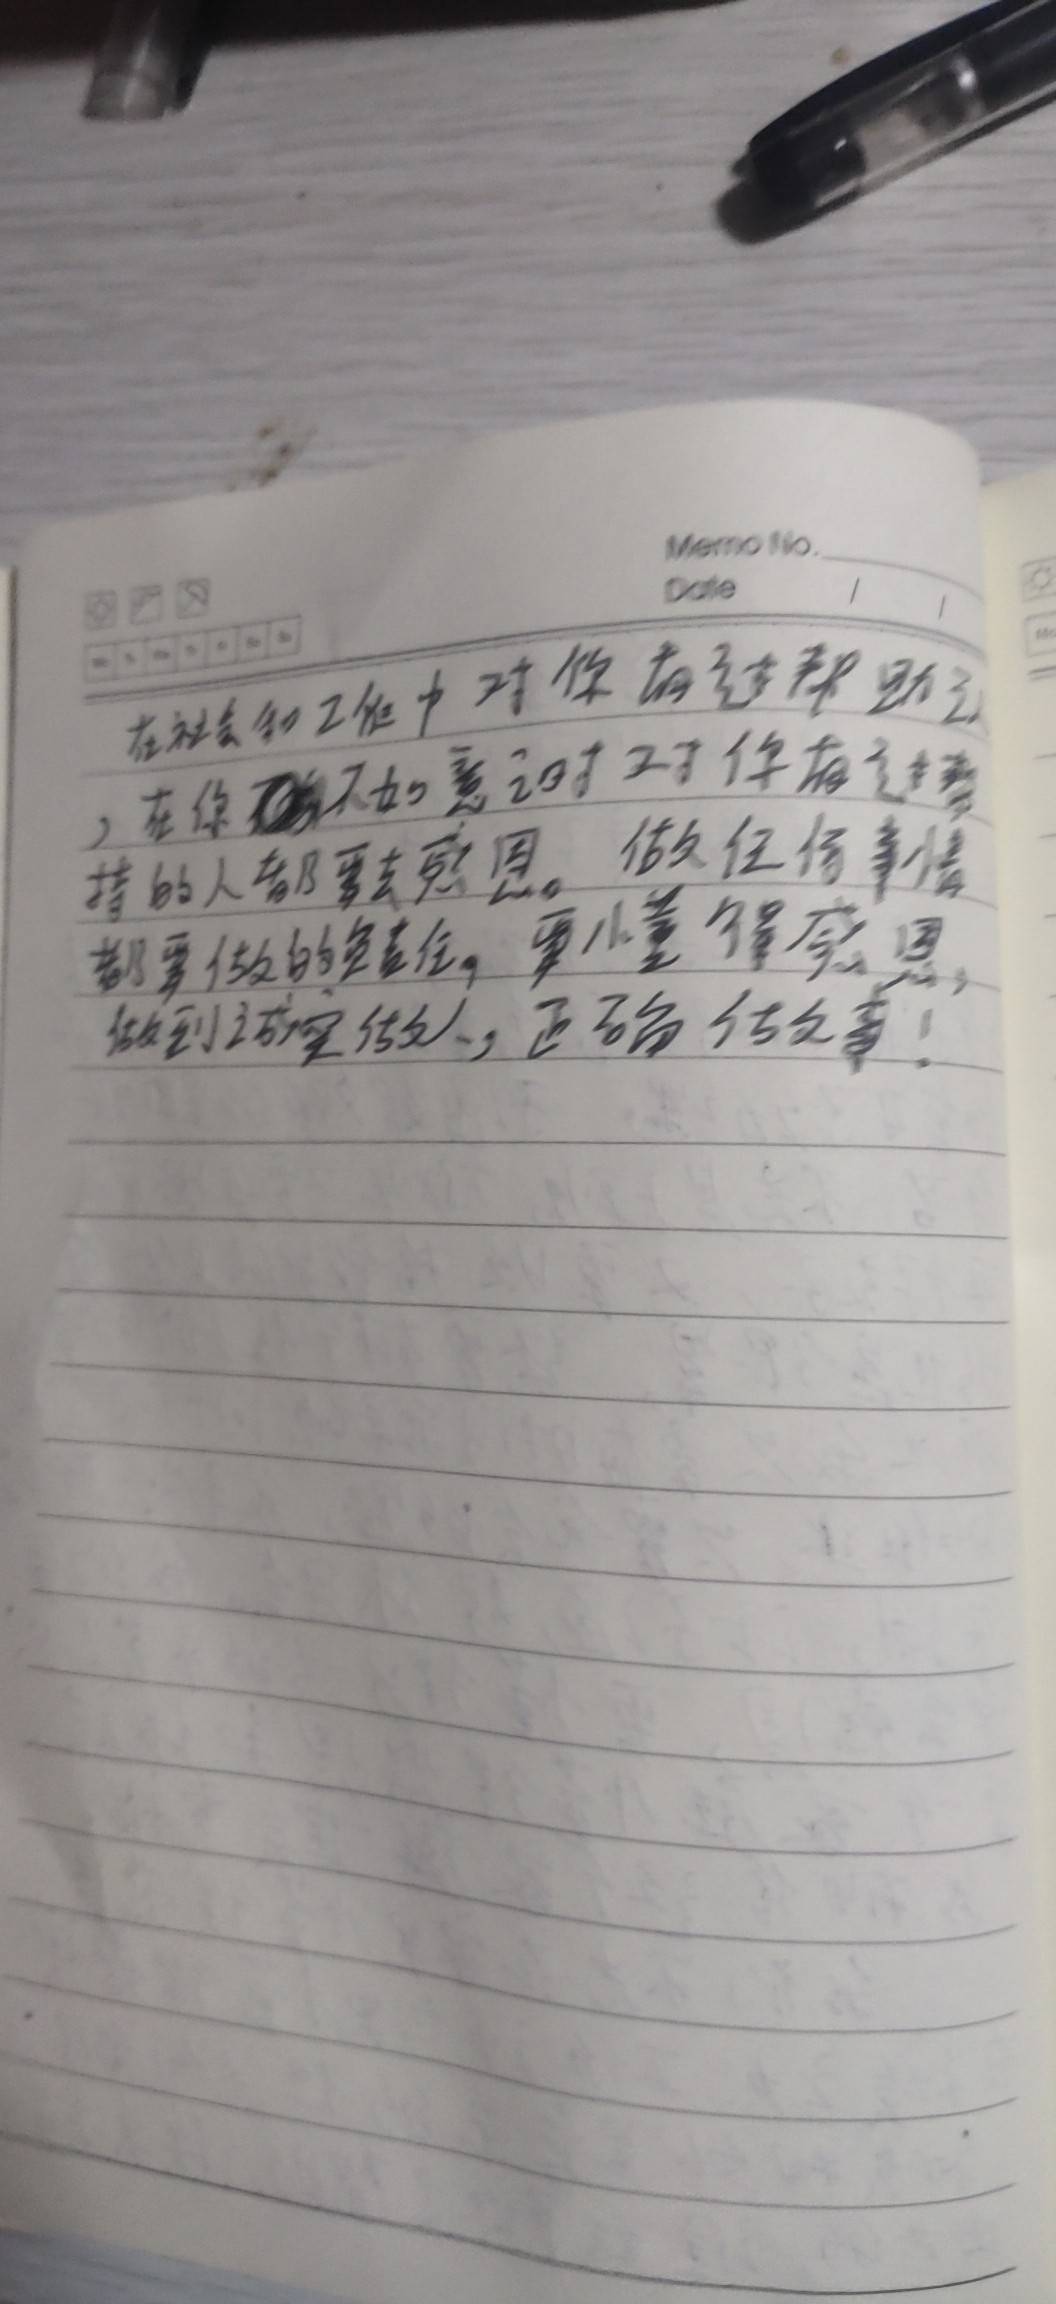 Memo No.
Date / /
在社会和工作中对你有过帮助过
,在你不如意时对你有过帮
持的人都要去感恩。做任何事情
都要做的负责任。要懂得感恩,
做到诚实做人,正确做事!